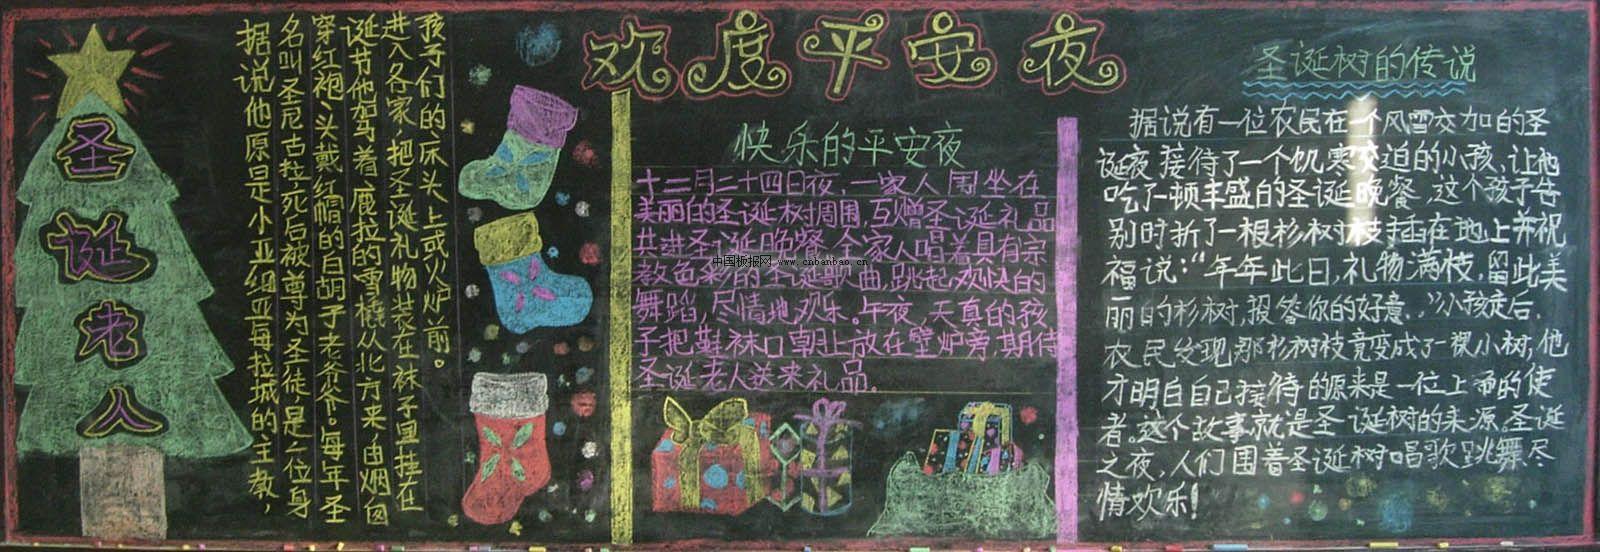 欢度平安夜
圣诞老人
据说他原是小亚细亚每拉城的主教，
名叫圣尼古拉，死后被尊为圣徒，是一位身
穿红袍、头戴红帽的白胡子老爷爷。每年圣
诞节他驾着鹿拉的雪橇从北方来，由烟囱
进入各家，把圣诞礼物装在袜子里挂在
孩子们的床头上或火炉前。
快乐的平安夜
十二月二十四日夜，一家人围坐在
美丽的圣诞树周围，互赠圣诞礼品
共进圣诞晚餐，全家人唱着具有宗
教色彩的圣诞歌曲，跳起欢快的
舞蹈，尽情地欢乐。午夜，天真的孩
子把鞋袜口朝上放在壁炉旁，期待
圣诞老人送来礼品。
中国板报网 www.cnbanbao.cn
圣诞树的传说
据说有一位农民在一个风雪交加的圣
诞夜接待了一个饥寒交迫的小孩，让他
吃了一顿丰盛的圣诞晚餐，这个孩子告
别时折了一根杉树枝插在地上并祝
福说：“年年此日，礼物满枝，留此美
丽的杉树，报答你的好意。”小孩走后，
农民发现那杉树枝竟变成了一棵小树，他
才明白自己接待的原来是一位上帝的使
者。这个故事就是圣诞树的来源。圣诞
之夜，人们围着圣诞树唱歌跳舞尽
情欢乐！